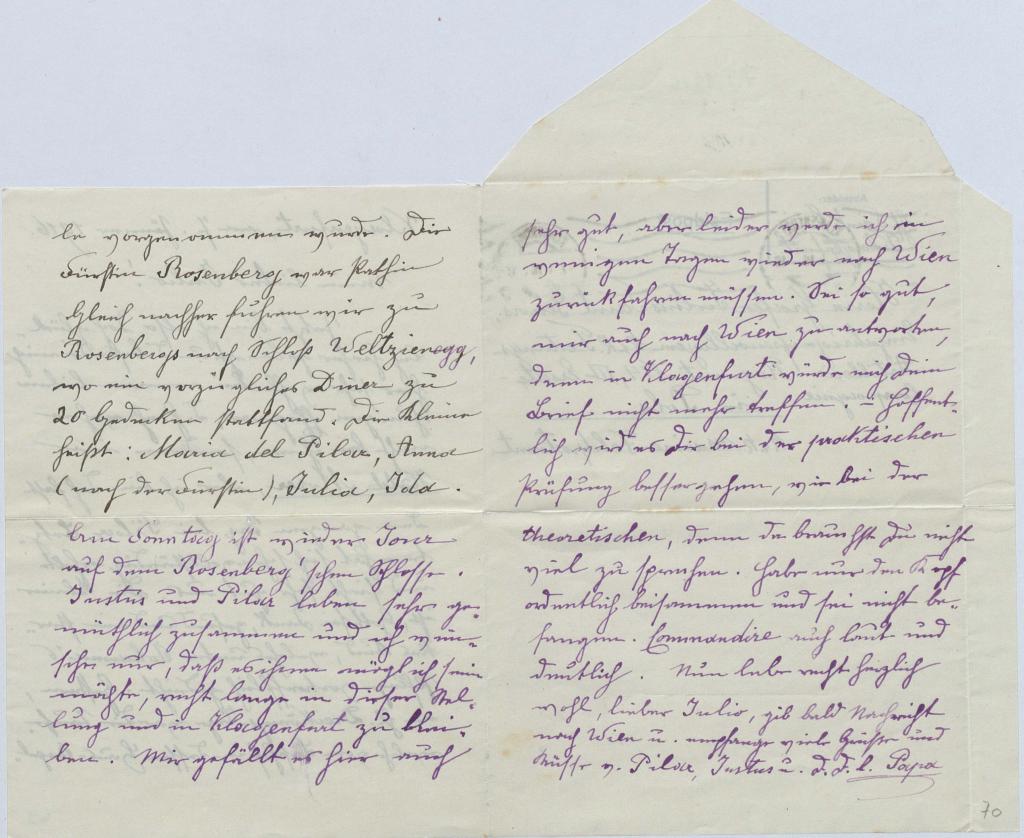 le vorgenommen wurde. Die
Fürstin Rosenberg war Pathin
Gleich nachher fuhren wir zu
Rosenbergs nach Schloß Weltzienegg,
wo ein vorzügliches Diner zu
20 Gedecken stattfand. Die Kleine
heißt: Maria del Pilar, Anna
(nach der Fürstin), Julia, Ida.
Am Sonntag ist wieder Jour
auf dem Rosenberg'schen Schlosse.
Justus und Pilar leben sehr ge-
müthlich zusammen und ich wün-
sche nur, daß es ihnen möglich sein
möchte, recht lange in dieser Stel-
lung und in Klagenfurt zu blei-
ben. Mir gefällt es hier auch
sehr gut, aber leider werde ich in
wenigen Tagen wieder nach Wien
zurückfahren müssen. Sei so gut,
mir auch nach Wien zu antworten,
denn in Klagenfurt würde mich Dein
Brief nicht mehr treffen. – Hoffent-
lich wird es Dir bei der praktischen
Prüfung besser gehen, wie bei der
theoretischen, denn da brauchst Du nicht
viel zu sprechen. Habe nur den Kopf
ordentlich beisammen und sei nicht be-
fangen. Commandire auch laut und
deutlich. Nun lebe recht herzlich
wohl, lieber Julio, gib bald Nachricht
nach Wien u. empfange viele Grüße und
Küsse v. Pilar, Justus u. D. D. l. Papa
70